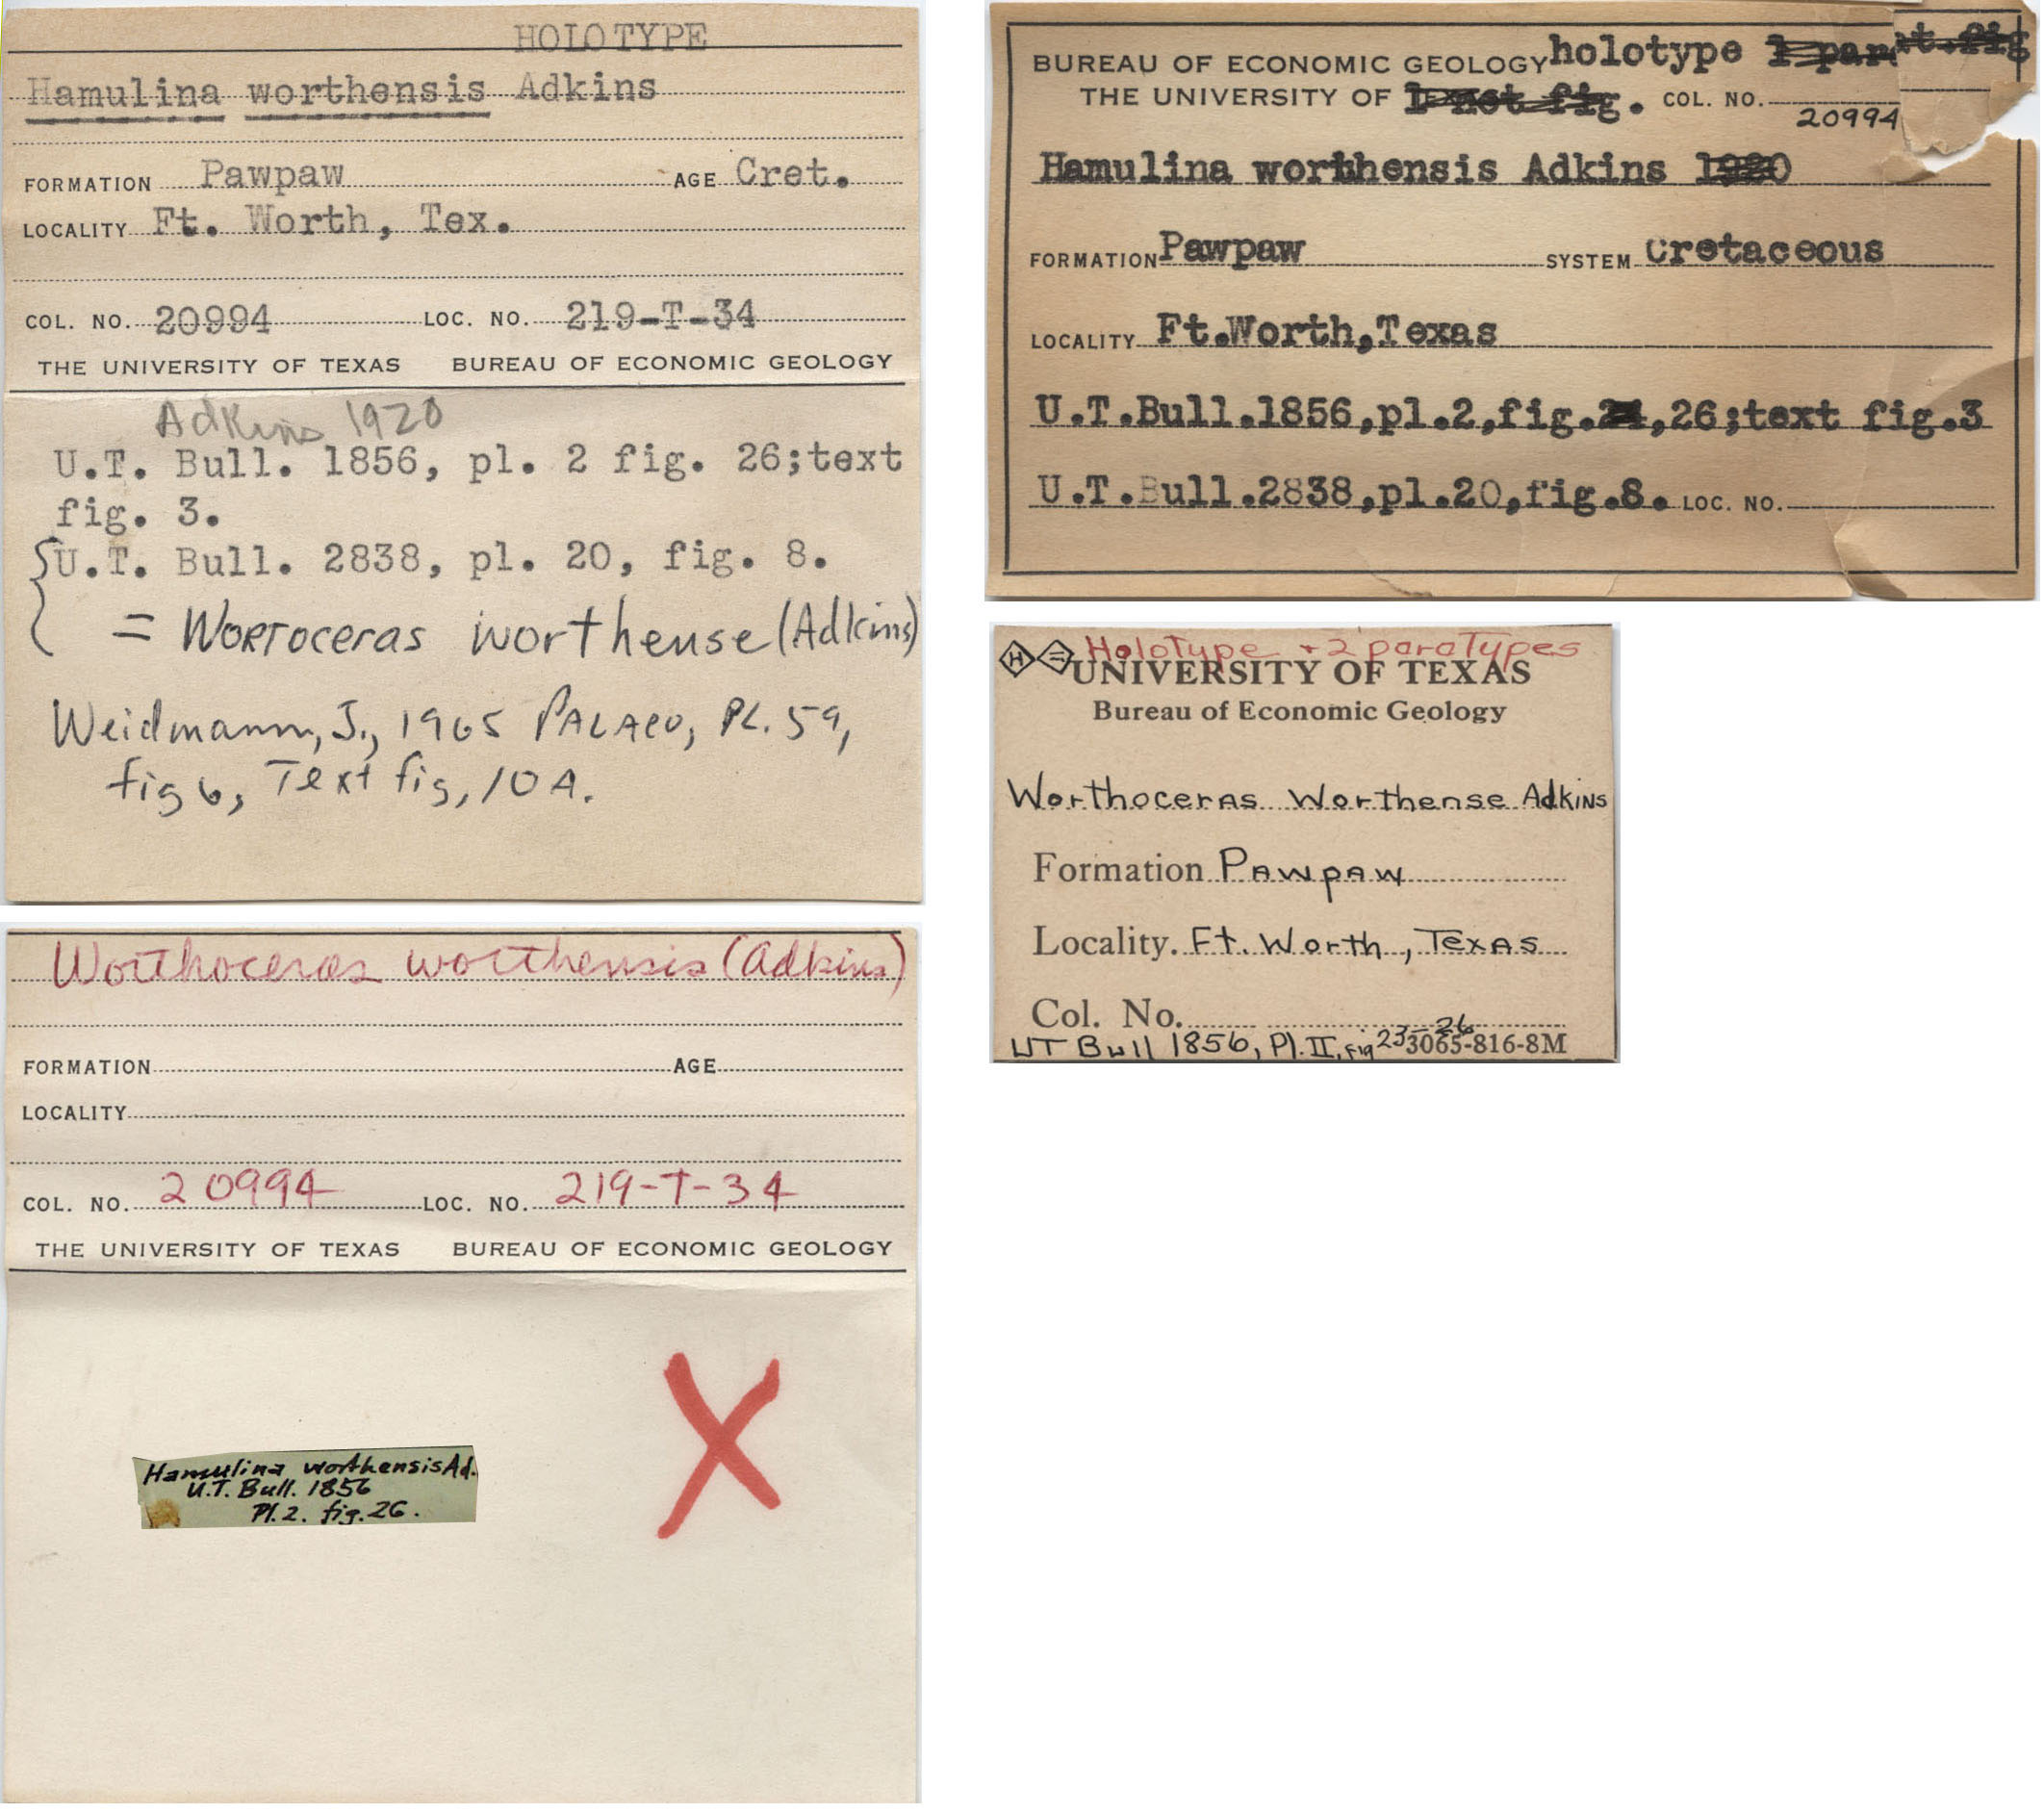 HOLOTYPE
Hamulina worthensis Adkins
FORMATION Pawpaw AGE Cret.
LOCALITY Ft. Worth, Tex.
COL. NO. 20994 LOC. NO. 219-T-34
THE UNIVERSITY OF TEXAS BUREAU OF ECONOMIC GEOLOGY
Adkins 1920
U.T. Bull. 1856, pl. 2 fig. 26;text
fig. 3.
U.T. Bull. 2838, pl. 20, fig. 8.
= Wortoceras worthense (Adkins)
Weidmann, J., 1965 PALAEO, PL. 59,
fig 6, Text fig, 10 A.
Worthoceras worthensis (Adkins)
FORMATION AGE
LOCALITY
COL. NO. 20994 LOC. NO. 219-T-34
THE UNIVERSITY OF TEXAS BUREAU OF ECONOMIC GEOLOGY
X
Hamulina worthensis Ad.
U.T. Bull. 1856
Pl. 2. fig. 26.
BUREAU OF ECONOMIC GEOLOGY holotype
THE UNIVERSITY OF COL. NO.
20994
Hamulina worthensis Adkins 1920
FORMATION Pawpaw SYSTEM Cretaceous
LOCALITY Ft.Worth,Texas
U.T.Bull.1856,pl.2,fig.24,26;text fig.3
U.T.Bull.2838,pl.20,fig.8. LOC. NO.
H = Holotype + 2 paratypes
UNIVERSITY OF TEXAS
Bureau of Economic Geology
Worthoceras Worthense Adkins
Formation Pawpaw
Locality. Ft. Worth, Texas
Col. No.
UT Bull 1856, Pl. II, fig 23-26 3065-816-8M